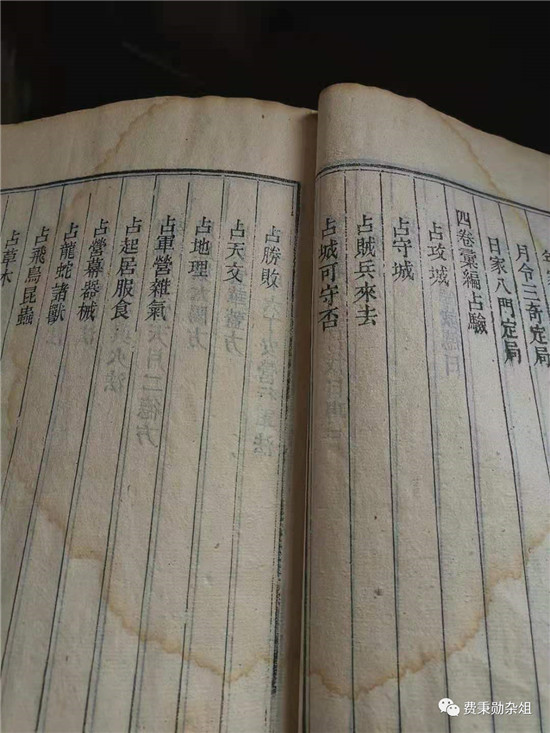 月令三奇定局
日家八門定局
四卷彙編占驗
占攻城
占守城
占賊兵來去
占城可守否
占勝敗
占天文
占地理
占軍營雜氣
占起居服食
占營幕器械
占龍蛇諸獸
占飛鳥昆蟲
占草木
费秉勋杂俎